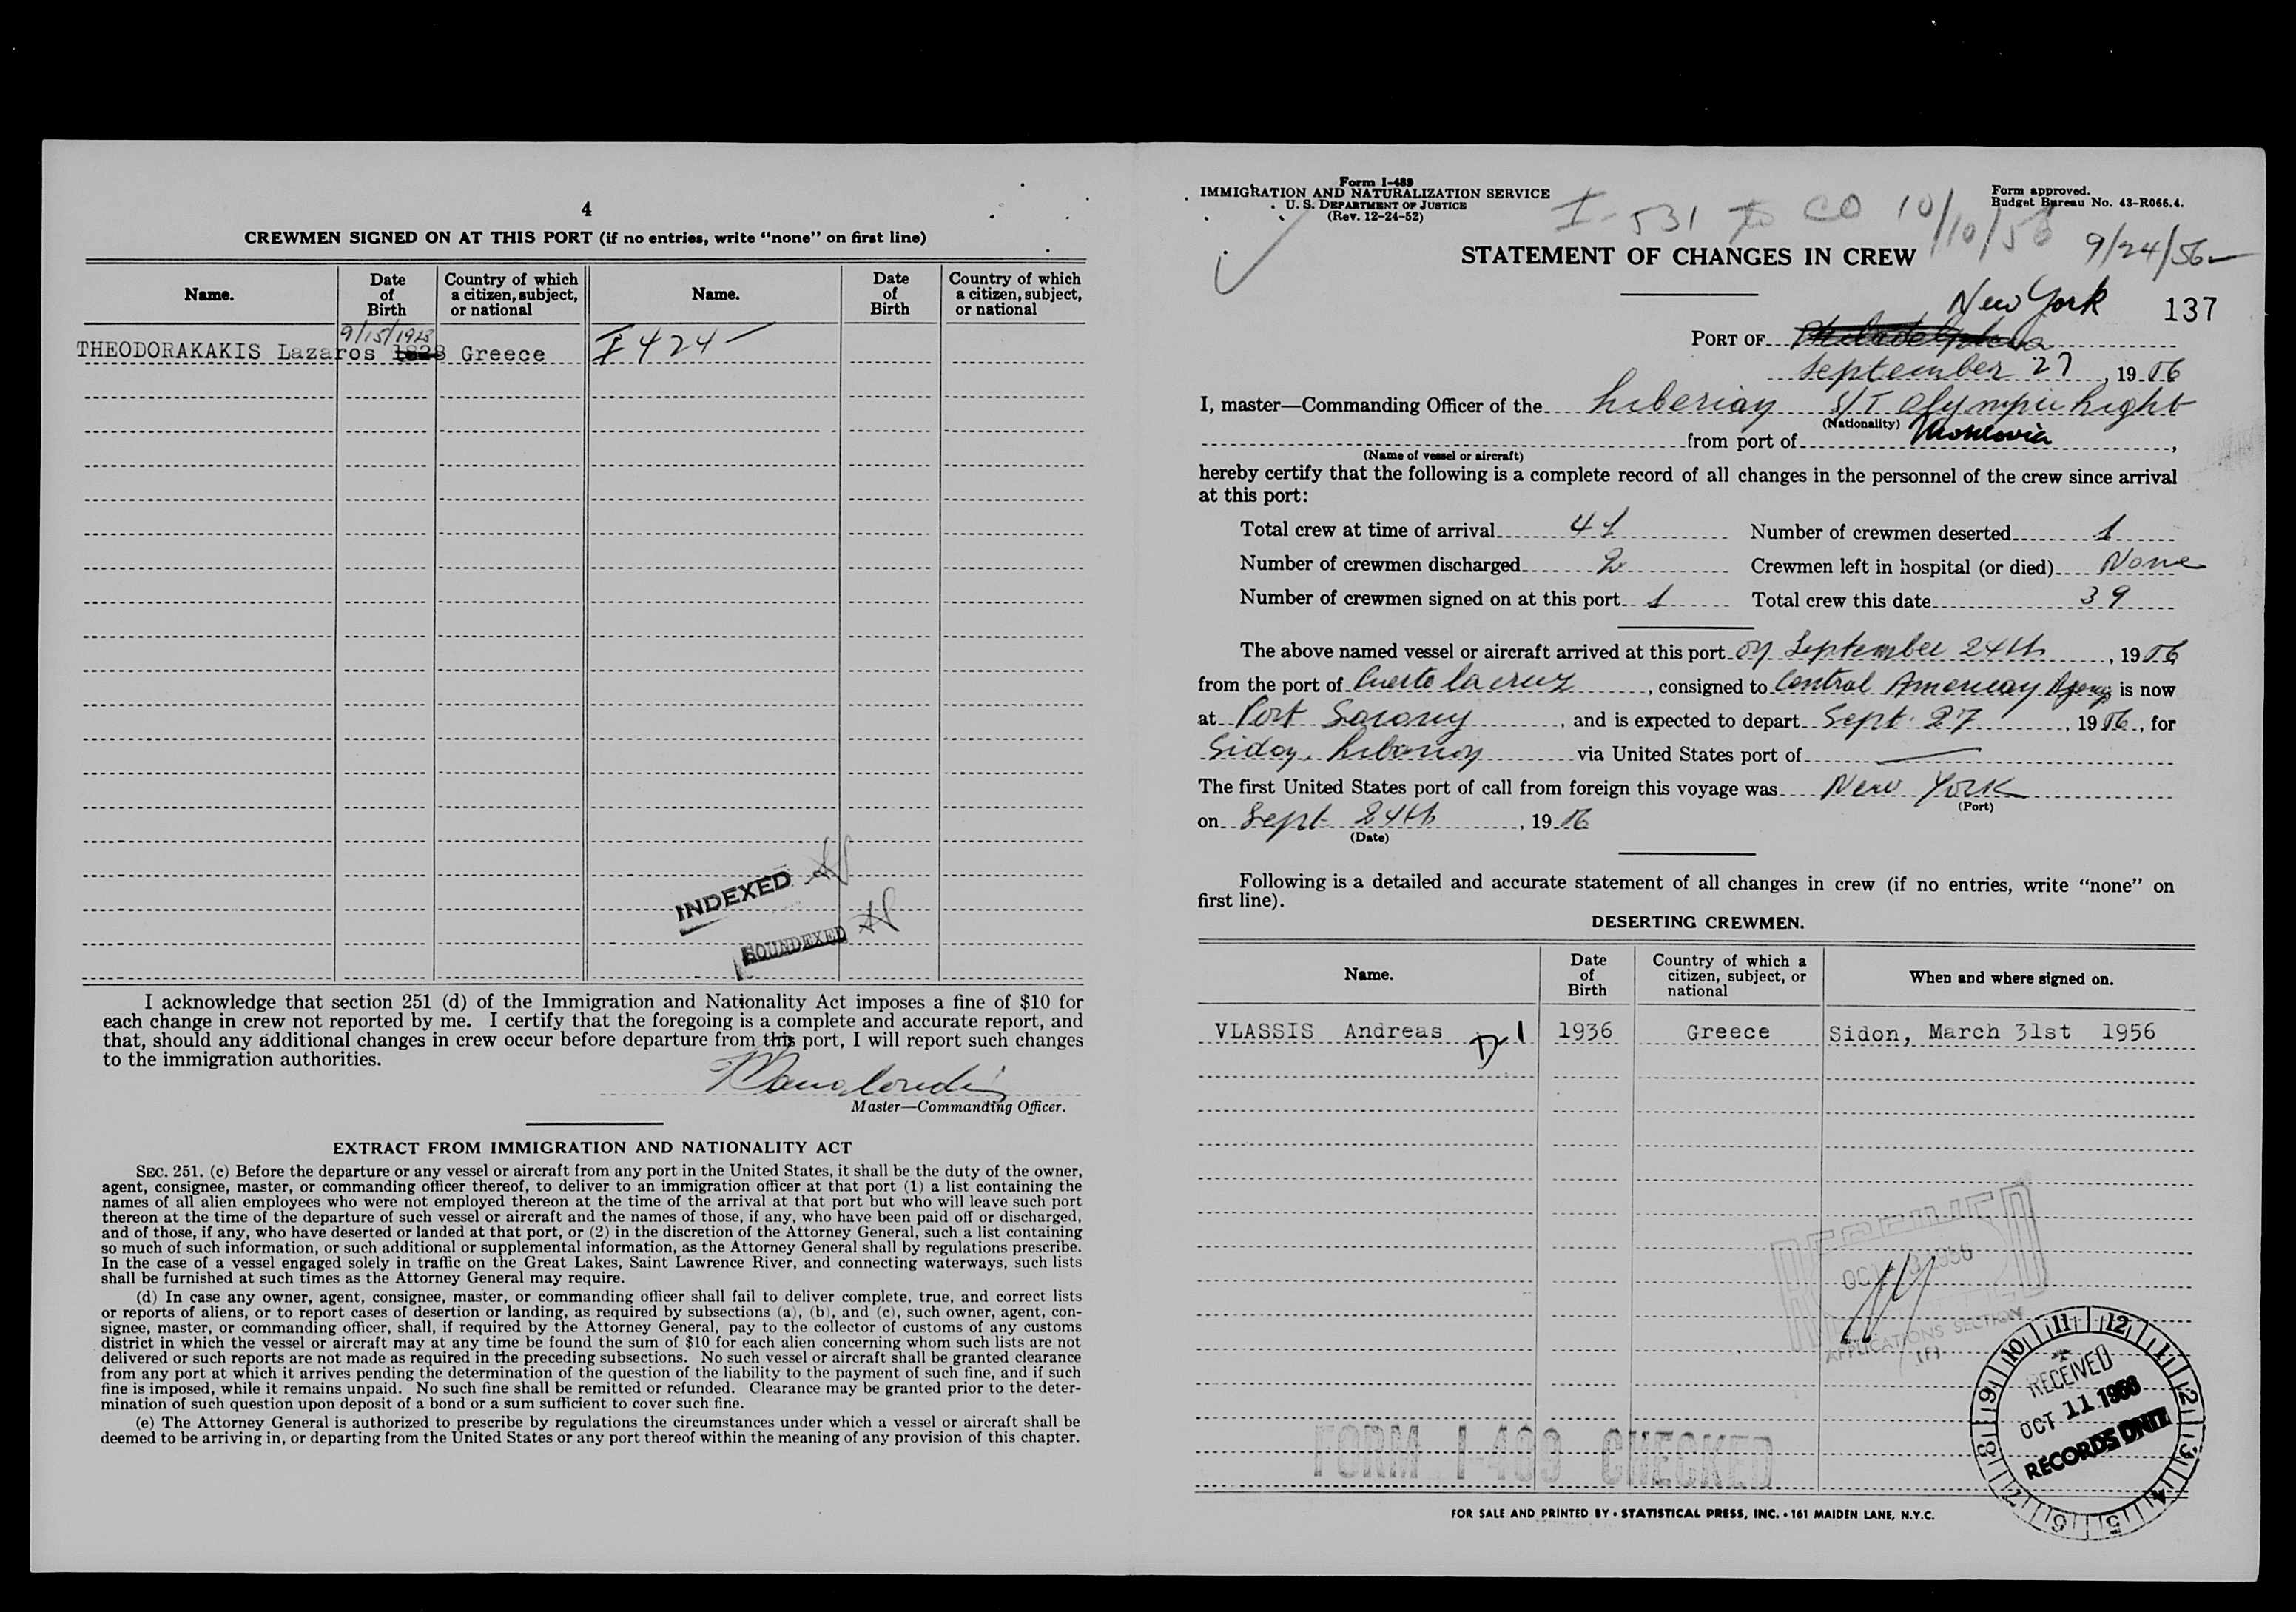 4
CREWMEN SIGNED ON AT THIS PORT (if no entries, write “none” on first line)
Name. Date of Birth Country of which a citizen, subject, or national Name. Date of Birth Country of which a citizen, subject, or national
9/15/1928
THEODORAKAKIS Lazaros 1928 Greece I 424
INDEXED
SOUNDEXED
I acknowledge that section 251 (d) of the Immigration and Nationality Act imposes a fine of $10 for
each change in crew not reported by me. I certify that the foregoing is a complete and accurate report, and
that, should any additional changes in crew occur before departure from this port, I will report such changes
to the immigration authorities.
Master—Commanding Officer.
EXTRACT FROM IMMIGRATION AND NATIONALITY ACT
SEC. 251. (c) Before the departure or any vessel or aircraft from any port in the United States, it shall be the duty of the owner,
agent, consignee, master, or commanding officer thereof, to deliver to an immigration officer at that port (1) a list containing the
names of all alien employees who were not employed thereon at the time of the arrival at that port but who will leave such port
thereon at the time of the departure of such vessel or aircraft and the names of those, if any, who have been paid off or discharged,
and of those, if any, who have deserted or landed at that port, or (2) in the discretion of the Attorney General, such a list containing
so much of such information, or such additional or supplemental information, as the Attorney General shall by regulations prescribe.
In the case of a vessel engaged solely in traffic on the Great Lakes, Saint Lawrence River, and connecting waterways, such lists
shall be furnished at such times as the Attorney General may require.
(d) In case any owner, agent, consignee, master, or commanding officer shall fail to deliver complete, true, and correct lists
or reports of aliens, or to report cases of desertion or landing, as required by subsections (a), (b), and (c), such owner, agent, con-
signee, master, or commanding officer, shall, if required by the Attorney General, pay to the collector of customs of any customs
district in which the vessel or aircraft may at any time be found the sum of $10 for each alien concerning whom such lists are not
delivered or such reports are not made as required in the preceding subsections. No such vessel or aircraft shall be granted clearance
from any port at which it arrives pending the determination of the question of the liability to the payment of such fine, and if such
fine is imposed, while it remains unpaid. No such fine shall be remitted or refunded. Clearance may be granted prior to the deter-
mination of such question upon deposit of a bond or a sum sufficient to cover such fine.
(e) The Attorney General is authorized to prescribe by regulations the circumstances under which a vessel or aircraft shall be
deemed to be arriving in, or departing from the United States or any port thereof within the meaning of any provision of this chapter.
Form I-489
IMMIGRATION AND NATURALIZATION SERVICE
U. S. DEPARTMENT OF JUSTICE
(Rev. 12-24-52)
Form approved.
Budget Bureau No. 43-R066.4.
I-531 to CO 10/10/56
9/24/56
STATEMENT OF CHANGES IN CREW
New York 137
PORT OF Philadelphia
September 27, 1956
I, master—Commanding Officer of the Liberian S/T Olympic Light
(Nationality)
from port of Monrovia,
(Name of vessel or aircraft)
hereby certify that the following is a complete record of all changes in the personnel of the crew since arrival
at this port:
Total crew at time of arrival 41 Number of crewmen deserted 1
Number of crewmen discharged 2 Crewmen left in hospital (or died) None
Number of crewmen signed on at this port 1 Total crew this date 39
The above named vessel or aircraft arrived at this port on September 24th, 1956
from the port of Puerto la cruz, consigned to Central American Agency is now
at Port Socony, and is expected to depart Sept. 27, 1956, for
Sidon, Libanon via United States port of
The first United States port of call from foreign this voyage was New York
(Port)
on Sept 24th, 1956
(Date)
Following is a detailed and accurate statement of all changes in crew (if no entries, write “none” on
first line).
DESERTING CREWMEN.
Name. Date of Birth Country of which a citizen, subject, or national When and where signed on.
VLASSIS Andreas D-1 1936 Greece Sidon, March 31st 1956
RECEIVED
APPLICATIONS SECTION
(F)
RECEIVED
OCT 11 1956
RECORDS UNIT
10 11 12 1 2 3 4 5 6 7 8 9
FORM I-489 CHECKED
FOR SALE AND PRINTED BY • STATISTICAL PRESS, INC. • 161 MAIDEN LANE, N.Y.C.